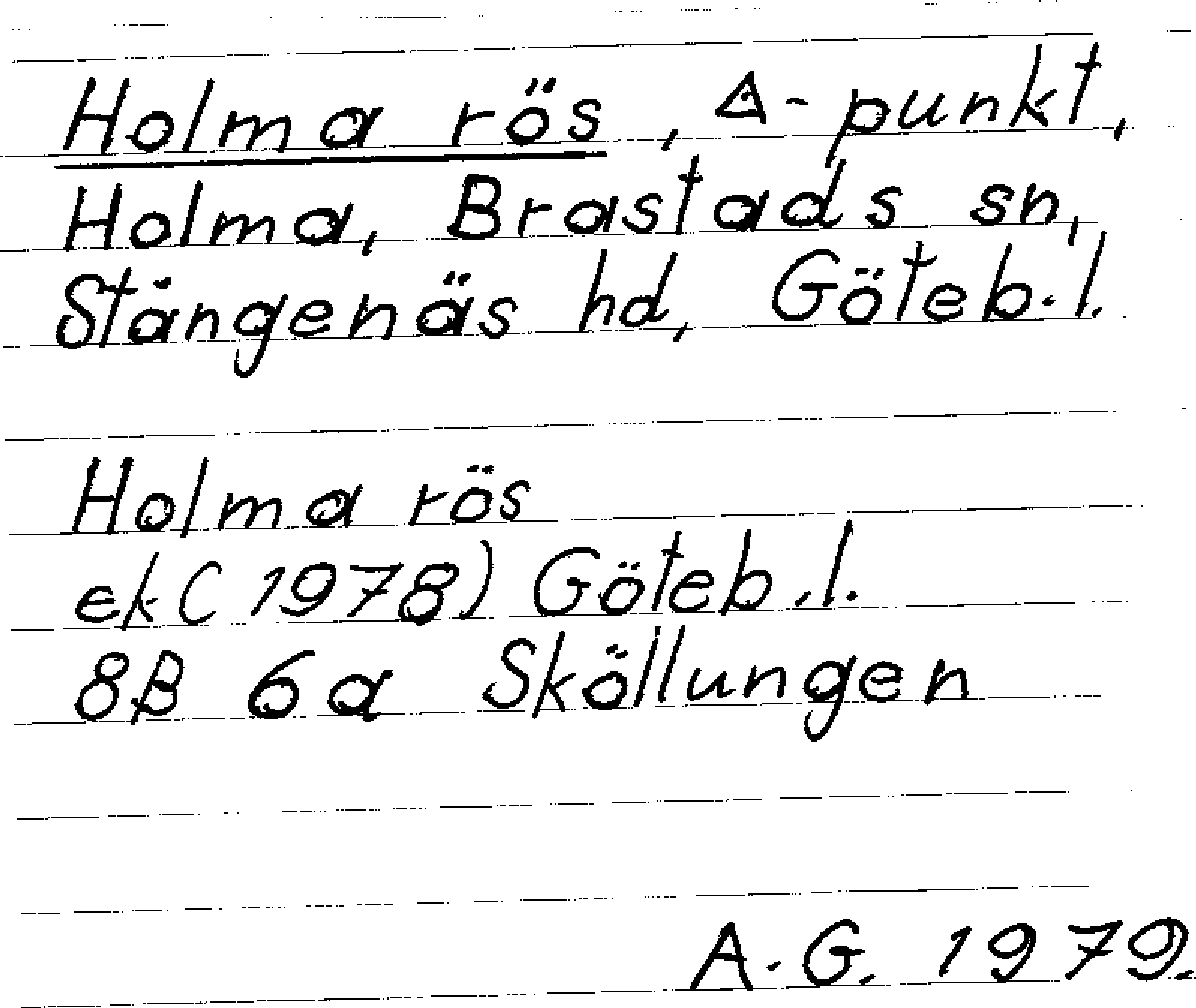 Holma rös, △-punkt,
Holma, Brastads sn,
Stångenäs hd, Göteb.l.
Holma rös
ek (1978) Göteb.l.
8B 6a Sköllungen
A.G. 1979.